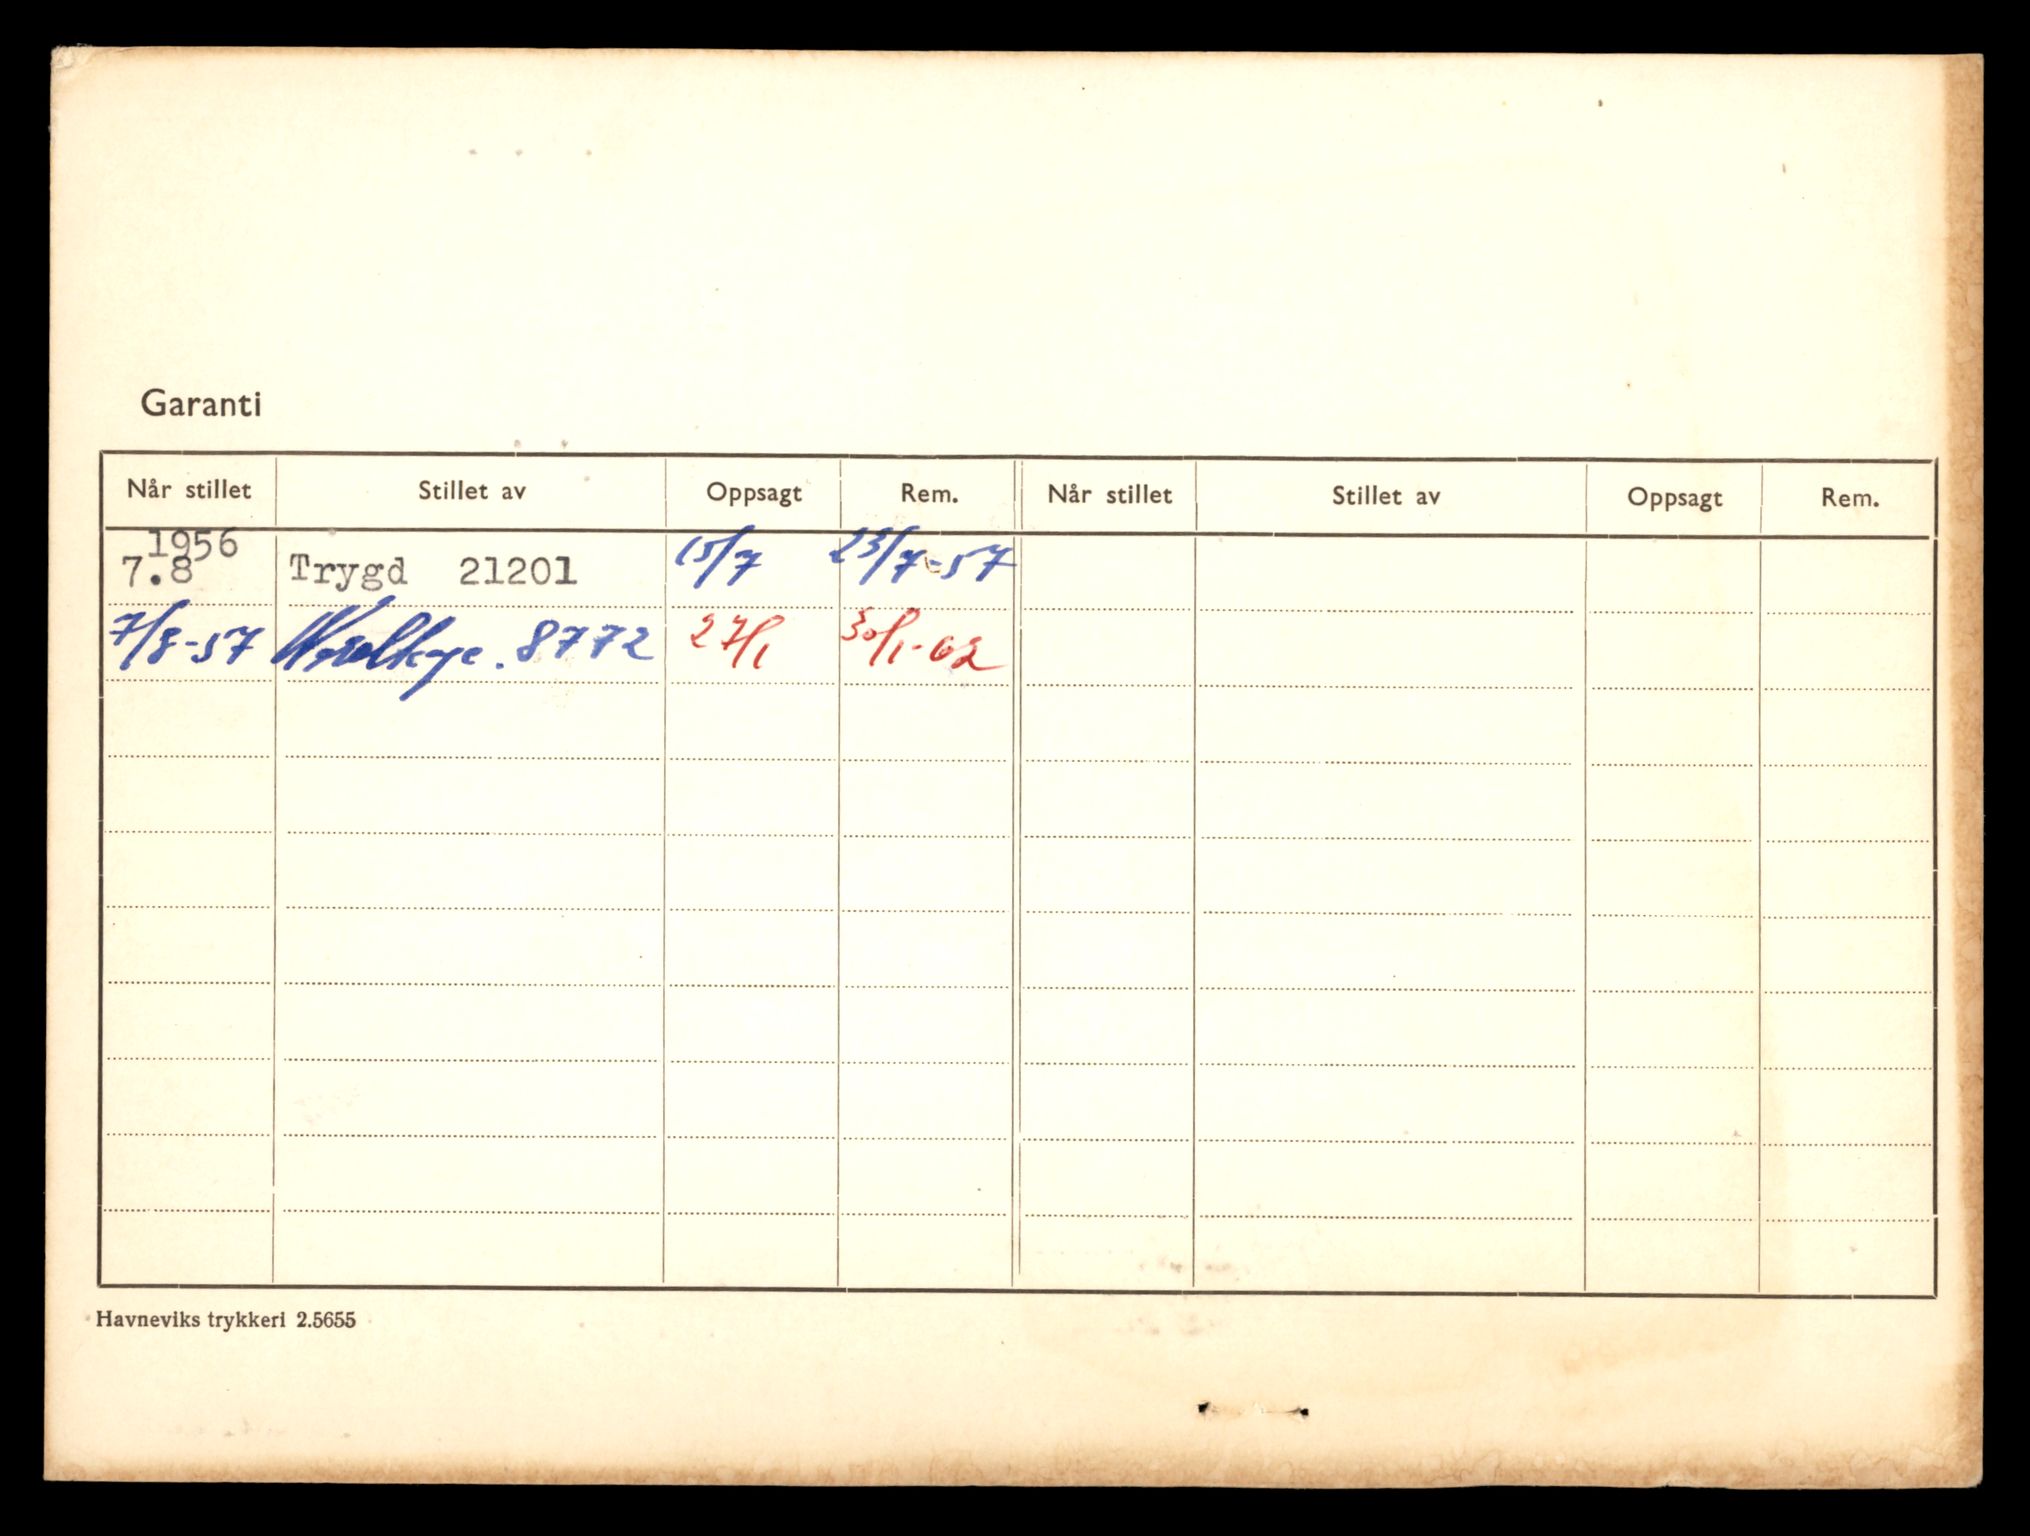 Garanti
Når stillet Stillet av Oppsagt Rem. Når stillet Stillet av Oppsagt Rem.
1956
7.8 Trygd 21201 15/7 23/7-57
7/8-57 8772 27/1 30/1-62
Havneviks trykkeri 2.5655